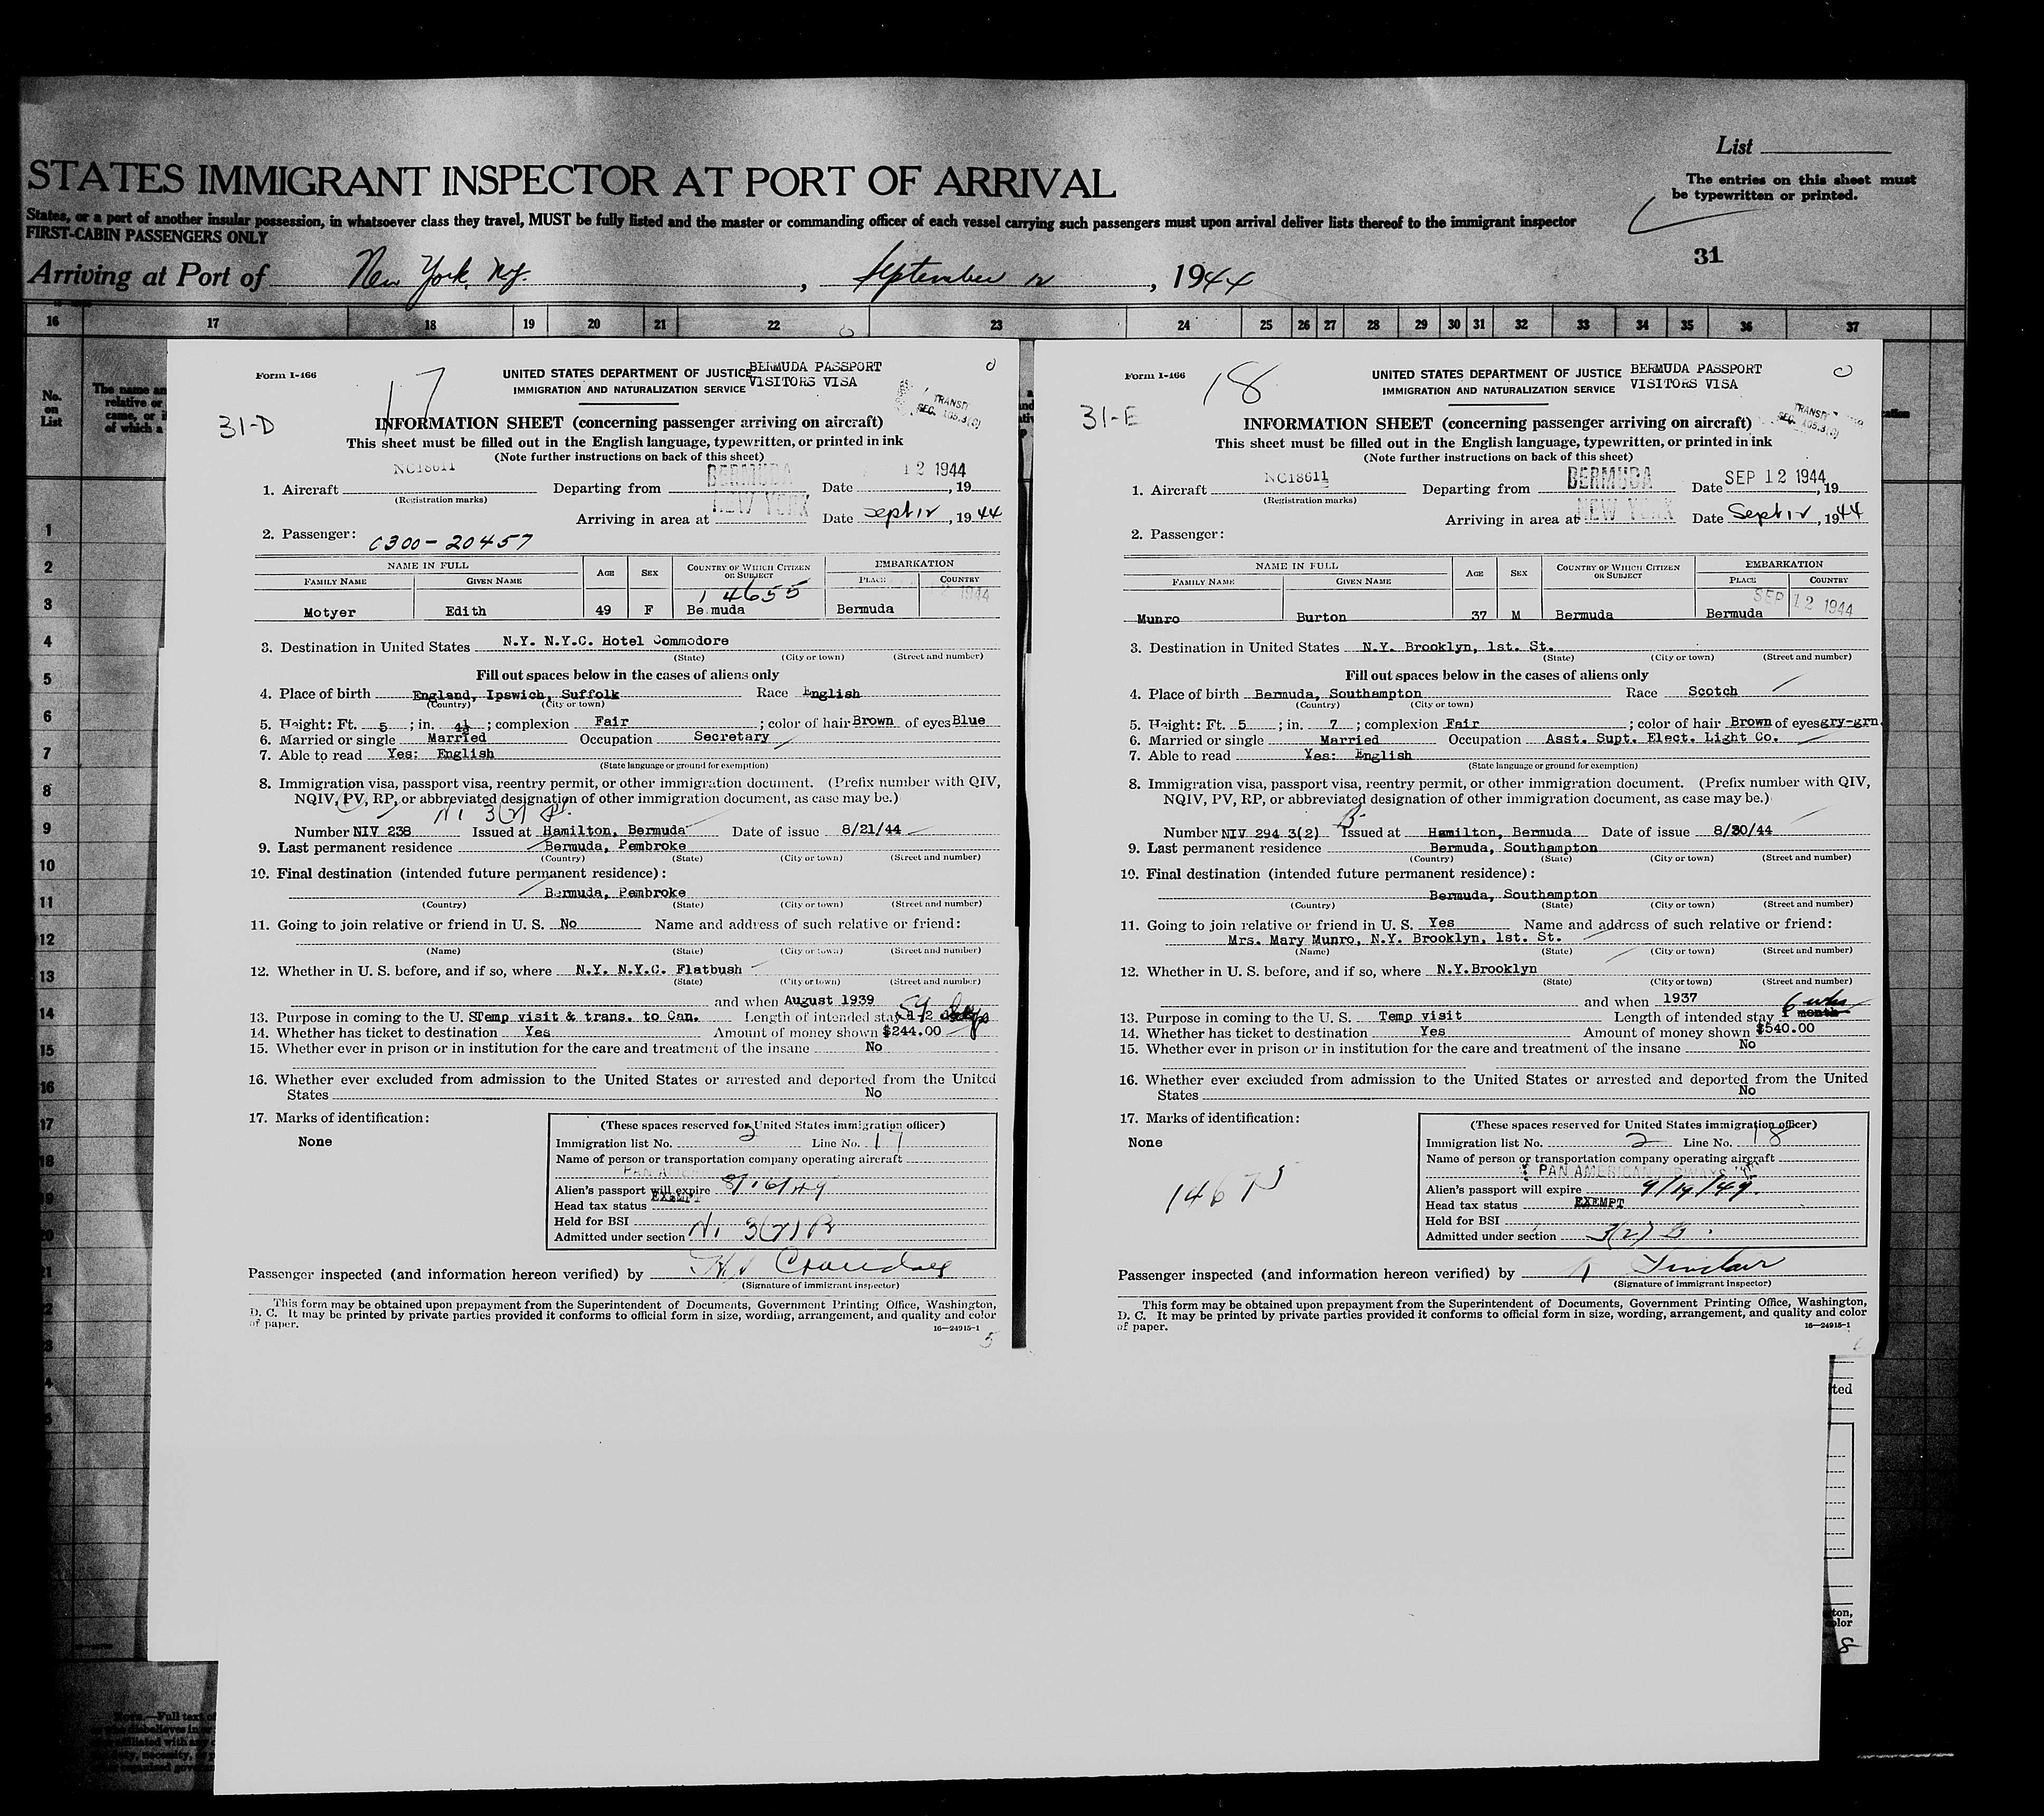 List
STATES IMMIGRANT INSPECTOR AT PORT OF ARRIVAL
The entries on this sheet must
be typewritten or printed.
States, or a port of another insular possession, in whatsoever class they travel, MUST be fully listed and the master or commanding officer of each vessel carrying such passengers must upon arrival deliver lists thereof to the immigrant inspector
FIRST-CABIN PASSENGERS ONLY
31
Arriving at Port of New York, N.Y. , September 12 , 1944
16 17 18 19 20 21 22 23 24 25 26 27 28 29 30 31 32 33 34 35 36 37
No.
on
List
The name an
relative or
came, or i
of which a
1
2
3
4
5
6
7
8
9
10
11
12
13
14
15
16
17
18
19
20
Form I-466
17
UNITED STATES DEPARTMENT OF JUSTICE
BERMUDA PASSPORT
VISITORS VISA
IMMIGRATION AND NATURALIZATION SERVICE
31-D
TRANSIT
SEC. 105.3(C)
INFORMATION SHEET (concerning passenger arriving on aircraft)
This sheet must be filled out in the English language, typewritten, or printed in ink
(Note further instructions on back of this sheet)
1. Aircraft NC18611 Departing from BERMUDA Date 12 1944, 19
(Registration marks)
Arriving in area at NEW YORK Date Sept 12, 1944
2. Passenger: 0300-20457
NAME IN FULL AGE SEX COUNTRY OF WHICH CITIZEN OR SUBJECT EMBARKATION
FAMILY NAME GIVEN NAME PLACE COUNTRY
14655
1944
Motyer Edith 49 F Bermuda Bermuda
3. Destination in United States N.Y. N.Y.C. Hotel Commodore
(State) (City or town) (Street and number)
Fill out spaces below in the cases of aliens only
4. Place of birth England, Ipswich, Suffolk Race English
(Country) (City or town)
5. Height: Ft. 5 ; in. 4½ ; complexion Fair ; color of hair Brown of eyes Blue
6. Married or single Married Occupation Secretary
7. Able to read Yes: English
(State language or ground for exemption)
8. Immigration visa, passport visa, reentry permit, or other immigration document. (Prefix number with QIV,
NQIV, PV, RP, or abbreviated designation of other immigration document, as case may be.)
Number NIV 238 Issued at Hamilton, Bermuda Date of issue 8/21/44
9. Last permanent residence Bermuda, Pembroke
(Country) (State) (City or town) (Street and number)
10. Final destination (intended future permanent residence):
Bermuda, Pembroke
(Country) (State) (City or town) (Street and number)
11. Going to join relative or friend in U. S. No Name and address of such relative or friend:
(Name) (State) (City or town) (Street and number)
12. Whether in U. S. before, and if so, where N.Y. N.Y.C. Flatbush
(State) (City or town) (Street and number)
and when August 1939
13. Purpose in coming to the U. S. Temp visit & trans. to Can. Length of intended stay
14. Whether has ticket to destination Yes Amount of money shown $244.00
15. Whether ever in prison or in institution for the care and treatment of the insane No
16. Whether ever excluded from admission to the United States or arrested and deported from the United
States No
17. Marks of identification:
None
(These spaces reserved for United States immigration officer)
Immigration list No. 2 Line No. 17
Name of person or transportation company operating aircraft
Alien's passport will expire 8/16/49
Head tax status EXEMPT
Held for BSI
Admitted under section 3(2) B
Passenger inspected (and information hereon verified) by
(Signature of immigrant inspector)
This form may be obtained upon prepayment from the Superintendent of Documents, Government Printing Office, Washington,
D. C. It may be printed by private parties provided it conforms to official form in size, wording, arrangement, and quality and color
of paper.
16—24915-1
5
Form I-466
18
UNITED STATES DEPARTMENT OF JUSTICE
BERMUDA PASSPORT
VISITORS VISA
IMMIGRATION AND NATURALIZATION SERVICE
31-E
TRANSIT
SEC. 105.3(C)
INFORMATION SHEET (concerning passenger arriving on aircraft)
This sheet must be filled out in the English language, typewritten, or printed in ink
(Note further instructions on back of this sheet)
1. Aircraft NC18611 Departing from BERMUDA Date SEP 12 1944, 19
(Registration marks)
Arriving in area at NEW YORK Date Sept 12, 1944
2. Passenger:
NAME IN FULL AGE SEX COUNTRY OF WHICH CITIZEN OR SUBJECT EMBARKATION
FAMILY NAME GIVEN NAME PLACE COUNTRY
SEP 12 1944
Munro Burton 37 M Bermuda Bermuda
3. Destination in United States N.Y. Brooklyn, 1st. St.
(State) (City or town) (Street and number)
Fill out spaces below in the cases of aliens only
4. Place of birth Bermuda, Southampton Race Scotch
(Country) (City or town)
5. Height: Ft. 5 ; in. 7 ; complexion Fair ; color of hair Brown of eyes gry-grn.
6. Married or single Married Occupation Asst. Supt. Elect. Light Co.
7. Able to read Yes: English
(State language or ground for exemption)
8. Immigration visa, passport visa, reentry permit, or other immigration document. (Prefix number with QIV,
NQIV, PV, RP, or abbreviated designation of other immigration document, as case may be.)
Number NIV 294 3(2) B Issued at Hamilton, Bermuda Date of issue 8/30/44
9. Last permanent residence Bermuda, Southampton
(Country) (State) (City or town) (Street and number)
10. Final destination (intended future permanent residence):
Bermuda, Southampton
(Country) (State) (City or town) (Street and number)
11. Going to join relative or friend in U. S. Yes Name and address of such relative or friend:
Mrs. Mary Munro, N.Y. Brooklyn, 1st. St.
(Name) (State) (City or town) (Street and number)
12. Whether in U. S. before, and if so, where N.Y. Brooklyn
(State) (City or town) (Street and number)
and when 1937
13. Purpose in coming to the U. S. Temp visit Length of intended stay 1 month 6 wks
14. Whether has ticket to destination Yes Amount of money shown $540.00
15. Whether ever in prison or in institution for the care and treatment of the insane No
16. Whether ever excluded from admission to the United States or arrested and deported from the United
States No
17. Marks of identification:
None
14675
(These spaces reserved for United States immigration officer)
Immigration list No. 2 Line No. 18
Name of person or transportation company operating aircraft
PAN AMERICAN AIRWAYS
Alien's passport will expire 9/19/49.
Head tax status EXEMPT
Held for BSI
Admitted under section 3(2) B
Passenger inspected (and information hereon verified) by
(Signature of immigrant inspector)
This form may be obtained upon prepayment from the Superintendent of Documents, Government Printing Office, Washington,
D. C. It may be printed by private parties provided it conforms to official form in size, wording, arrangement, and quality and color
of paper.
16—24915-1
ted
ton,
olor
8
Note.—Full text of